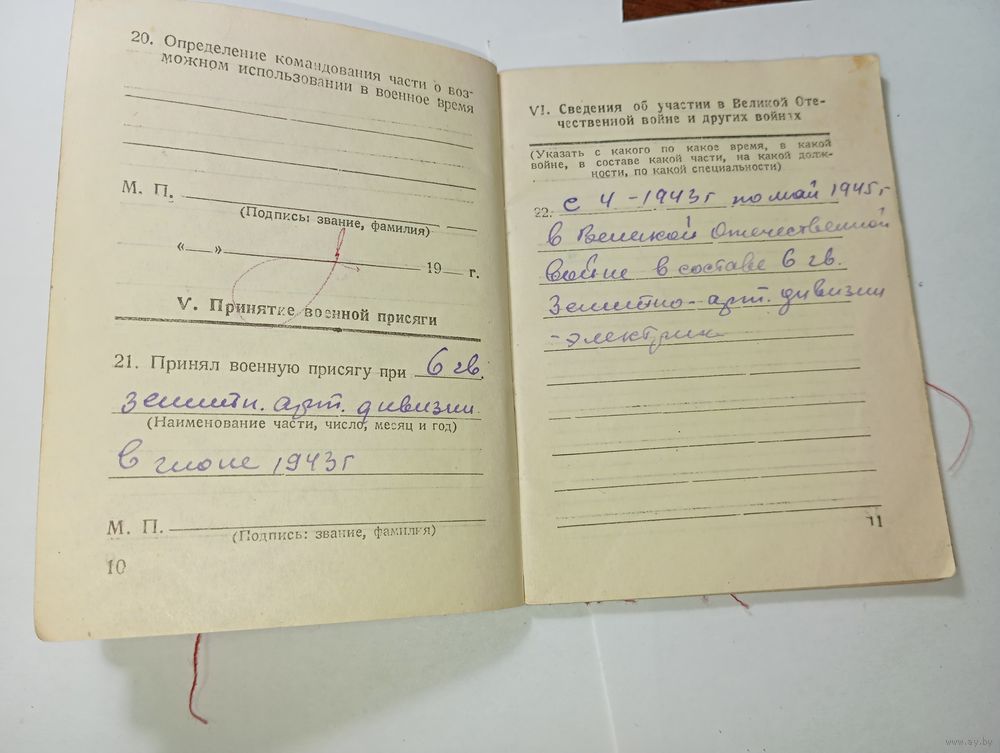 20. Определение командования части о воз-
можном использовании в военное время
М. П.
(Подпись: звание, фамилия)
« » 19 г.
V. Принятие военной присяги
21. Принял военную присягу при 6 гв.
зенитн. арт. дивизии
(Наименование части, число, месяц и год)
в июне 1943 г
М. П.
(Подпись: звание, фамилия)
10
VI. Сведения об участии в Великой Оте-
чественной войне и других войнах
(Указать с какого по какое время, в какой
войне, в составе какой части, на какой долж-
ности, по какой специальности)
22. с 4 - 1943 г по май 1945 г
в Великой Отечественной
войне в составе 6 гв.
Зенитно-арт. дивизии
- электрик
11
www.ay.by